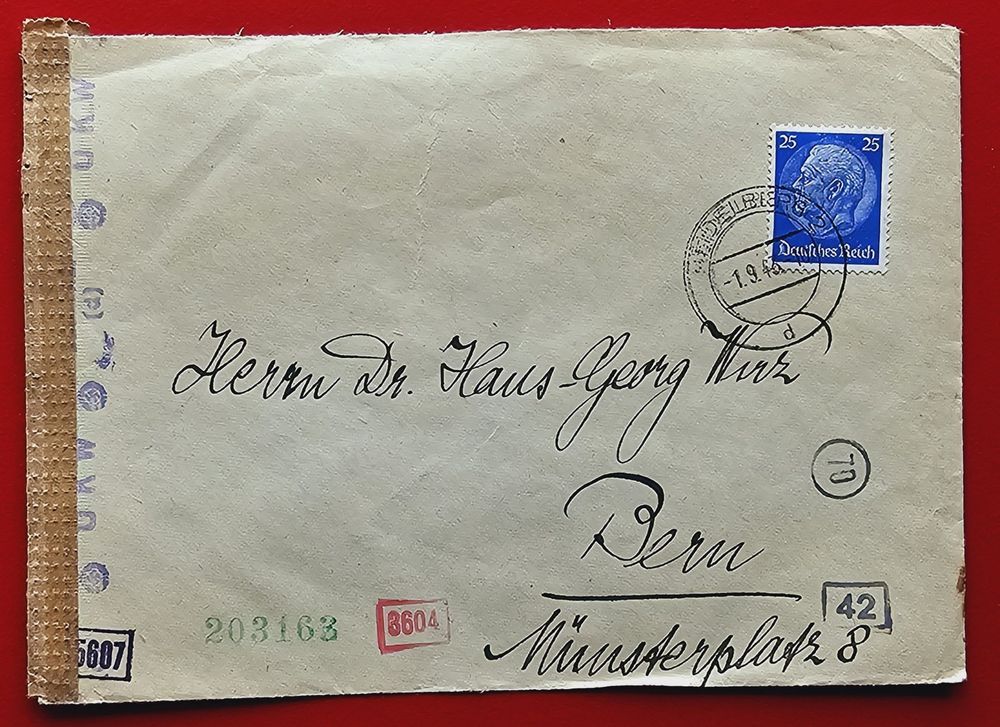 25 25
Deutsches Reich
HEIDELBERG
-1.9.4
d
Herrn Dr. Hans-Georg Wirz
Bern
Münsterplatz 8
70
42
203163
3604
5607